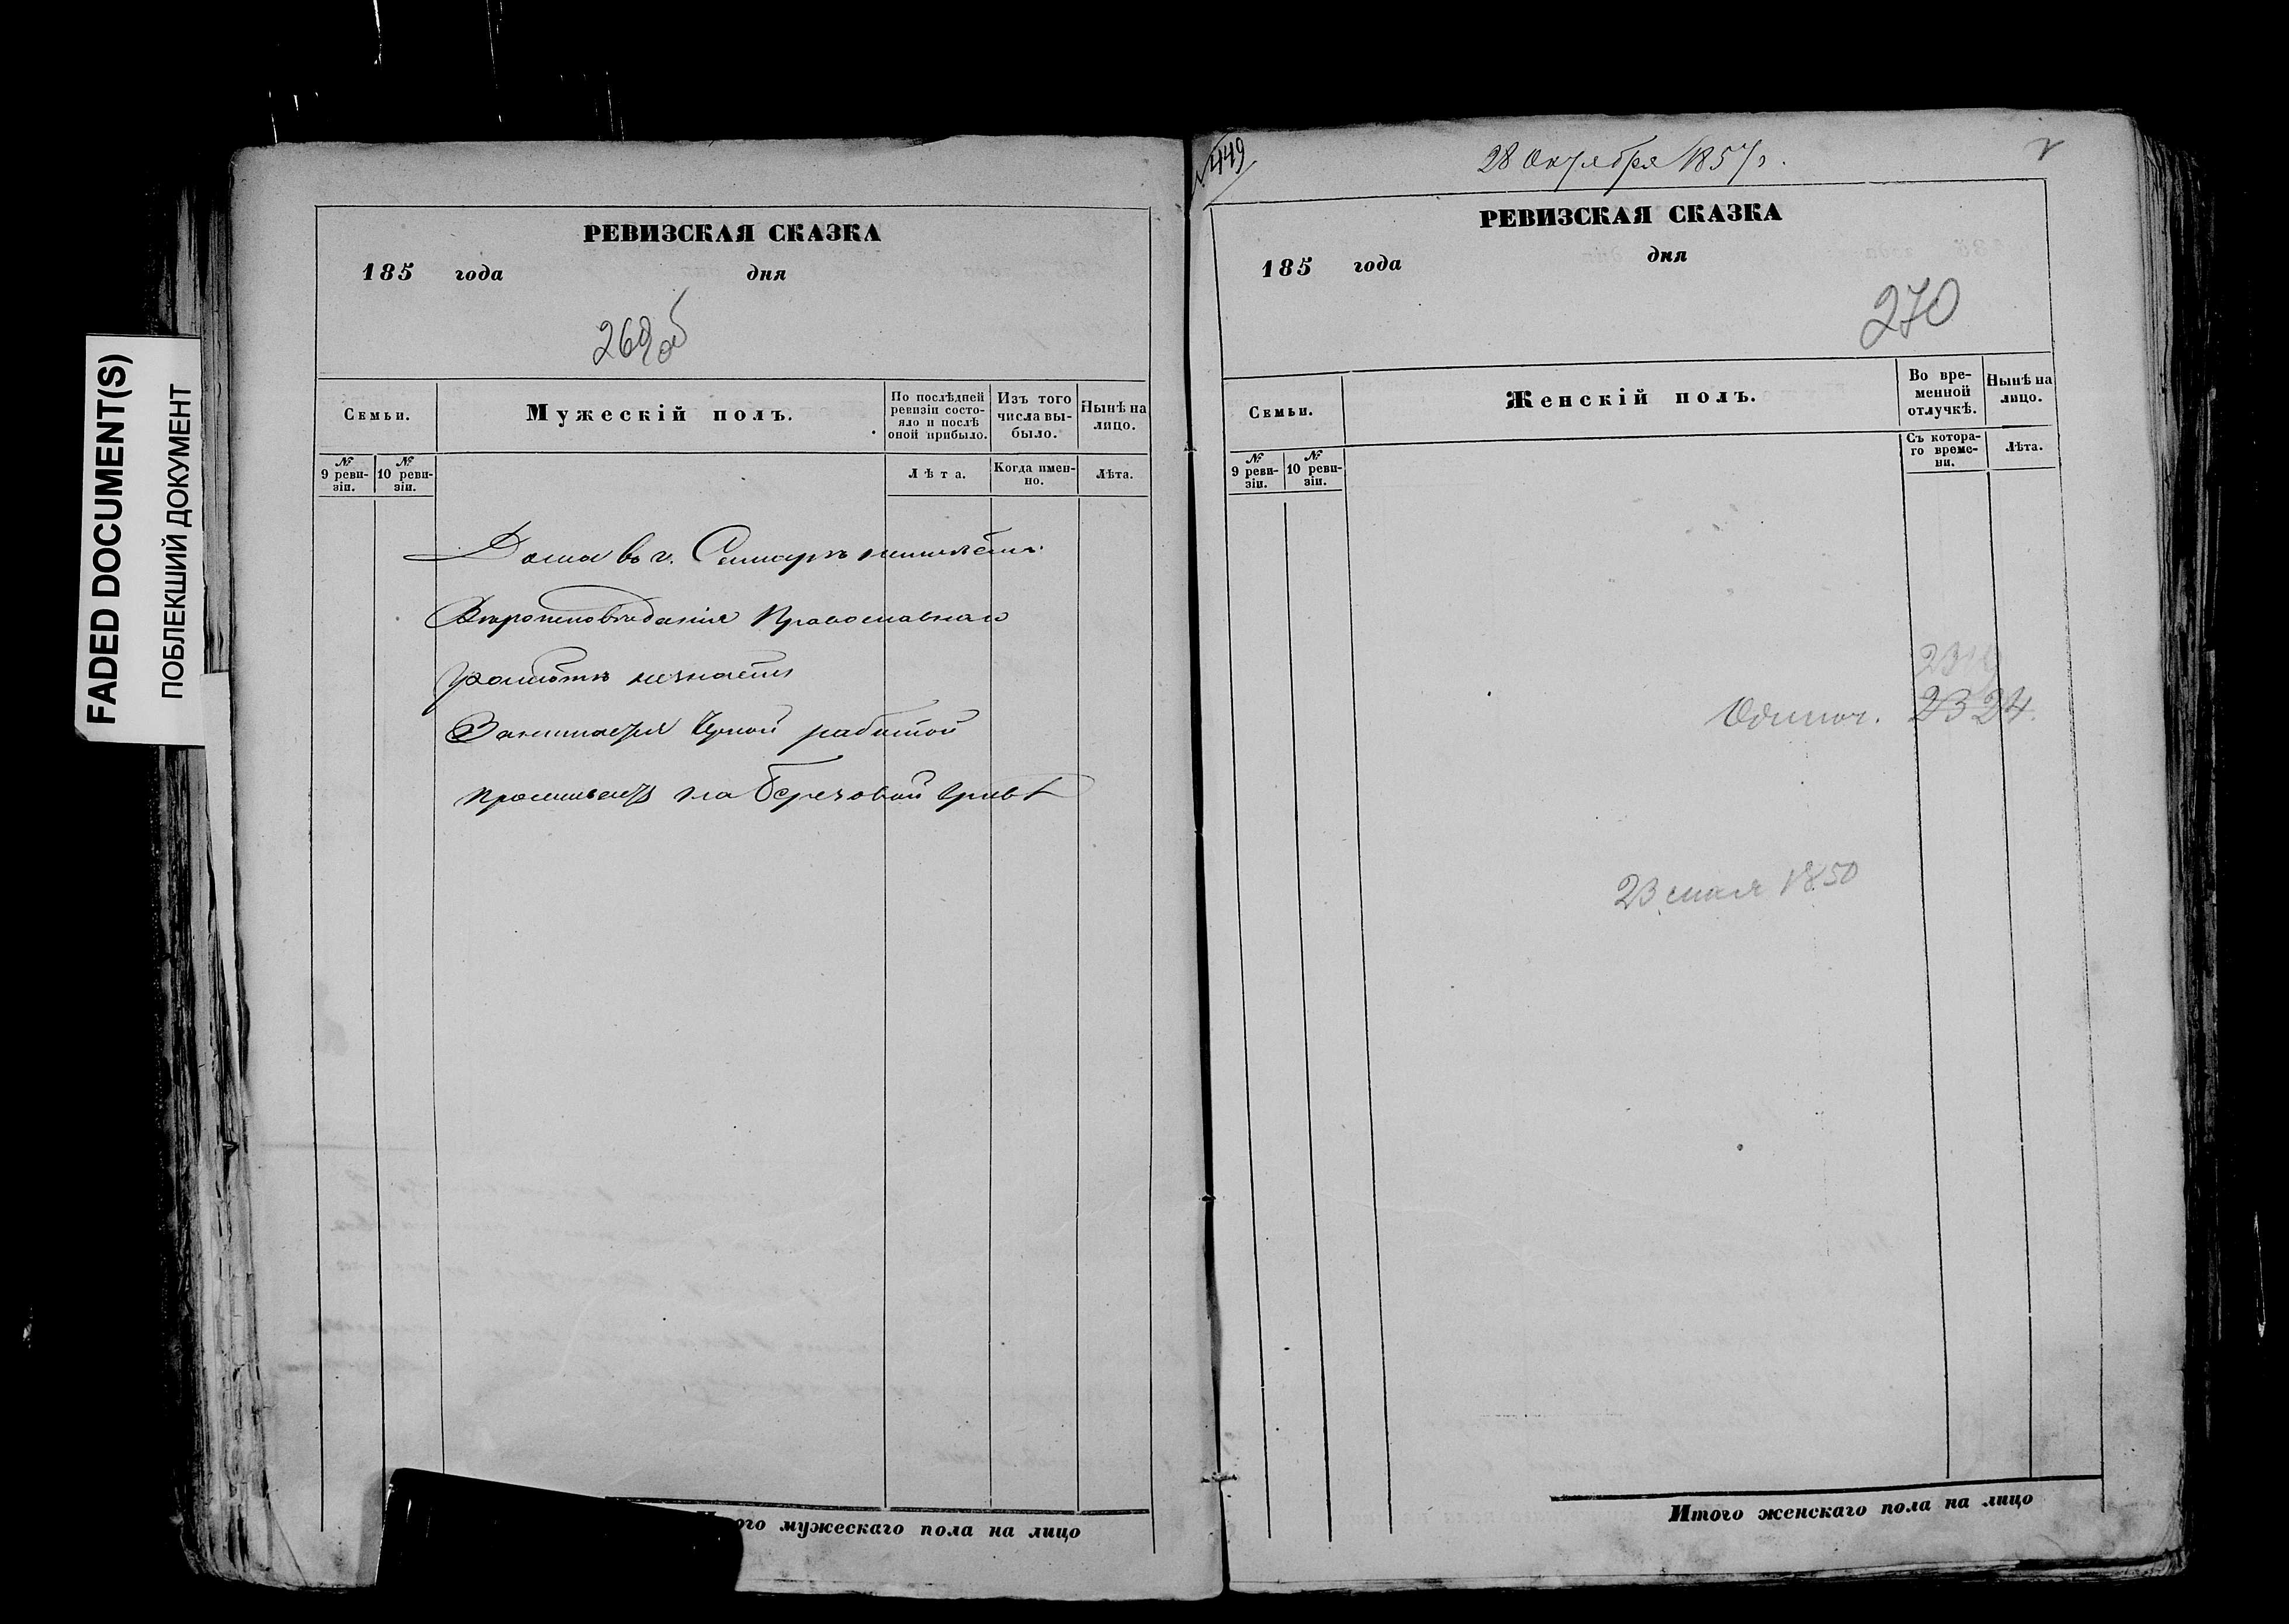 FADED DOCUMENT(S)
ПОБЛЕКШИЙ ДОКУМЕНТ
РЕВИЗСКАЯ СКАЗКА
185 года дня
269об
Семьи.
Мужескій полъ.
По послѣдней ревизіи состояло и послѣ оной прибыло.
Изъ того числа выбыло.
Нынѣ на лицо.
№ 9 ревизіи.
№ 10 ревизіи.
Лѣта.
Когда именно.
Лѣта.
Дома въ г. Самарѣ неимѣетъ
Вѣроисповѣданія Православнаго
Грамотѣ незнаетъ
Занимается Черной работой
проживаетъ на Березовой Гривѣ
Итого мужескаго пола на лицо
№ 449
28 Октября 1857 г.
РЕВИЗСКАЯ СКАЗКА
185 года дня
270
Семьи.
Женскій полъ.
Во временной отлучкѣ.
Нынѣ на лицо.
№ 9 ревизіи.
№ 10 ревизіи.
Съ котораго времени.
Лѣта.
Одиноч. 23 24.
23 мая 1850
Итого женскаго пола на лицо